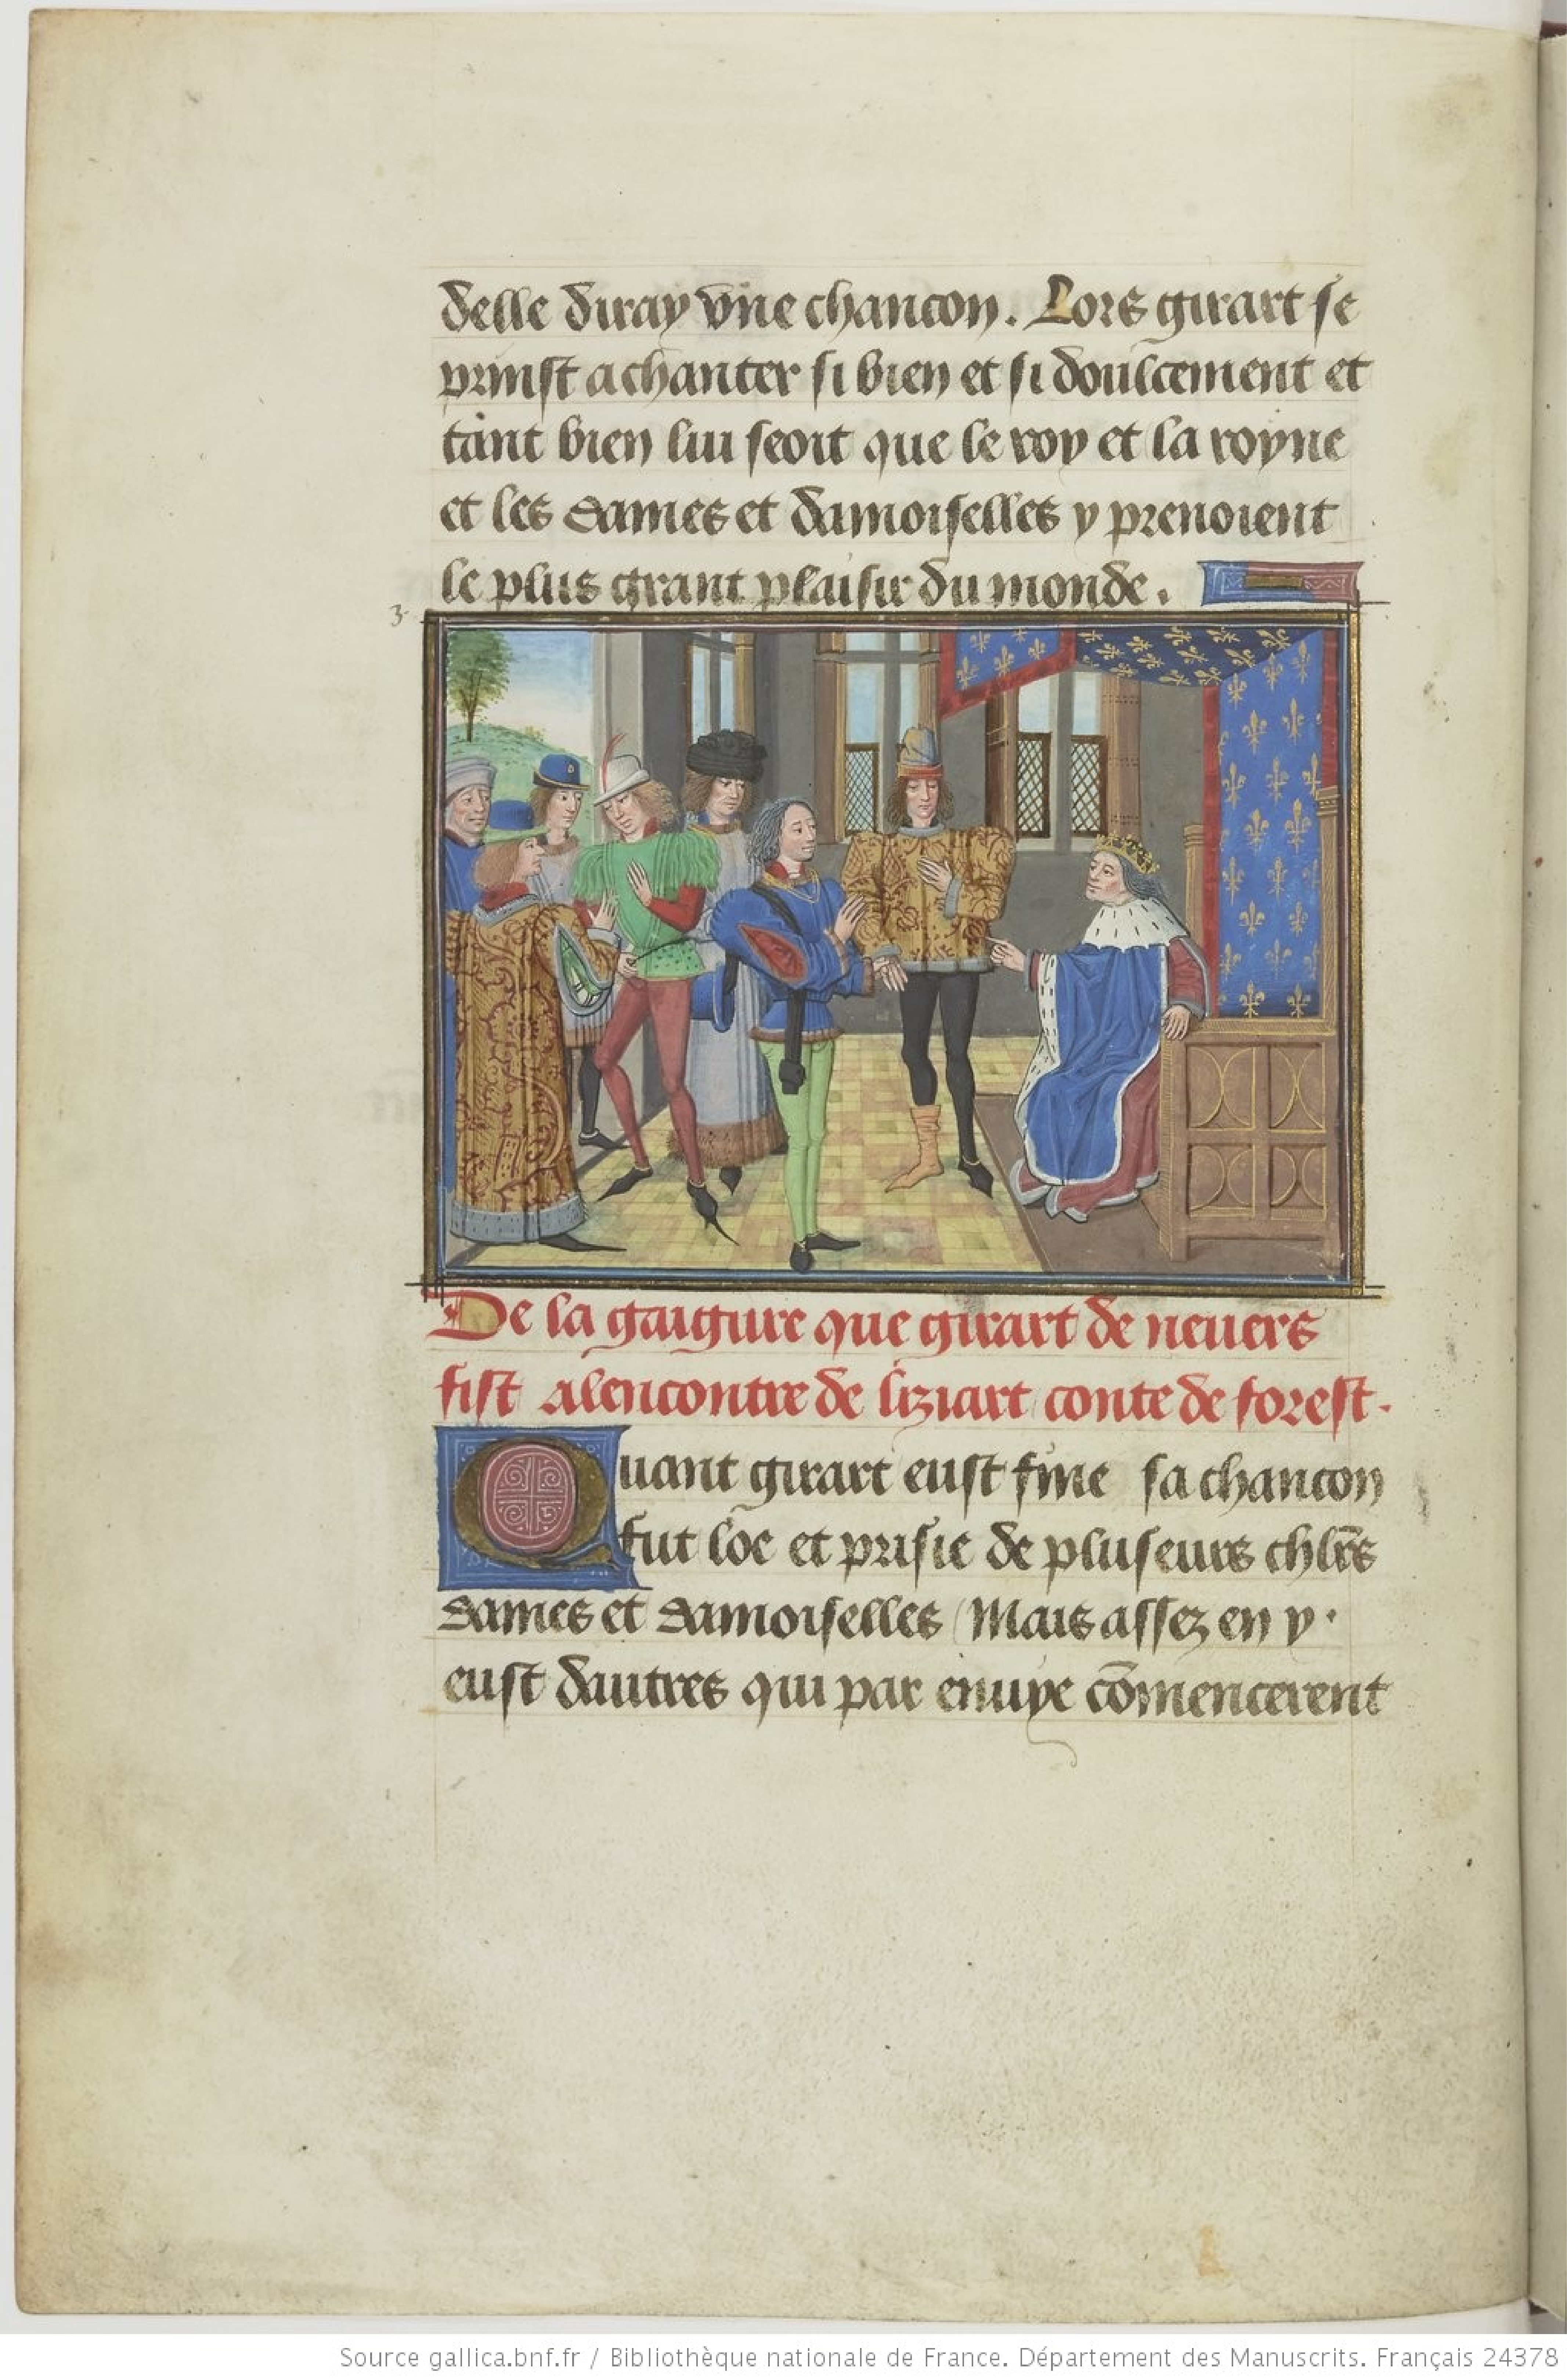 delle diray vne chancon. Lors girart se
prinst a chanter si bien et si doulcement et
tant bien lui seoit que le roy et la royne
et les dames et damoiselles y prenoient
le plus grant plaisir du monde.
3
De la gaigure que girart de neuers
fist alencontre de liziart conte de forest.
Quant girart eust fine sa chancon
fut loe et prisie de pluseurs chlrs
dames et damoiselles Mais assez en y
eust dautres qui par enuye cōmencerent
Source gallica.bnf.fr / Bibliothèque nationale de France. Département des Manuscrits. Français 24378